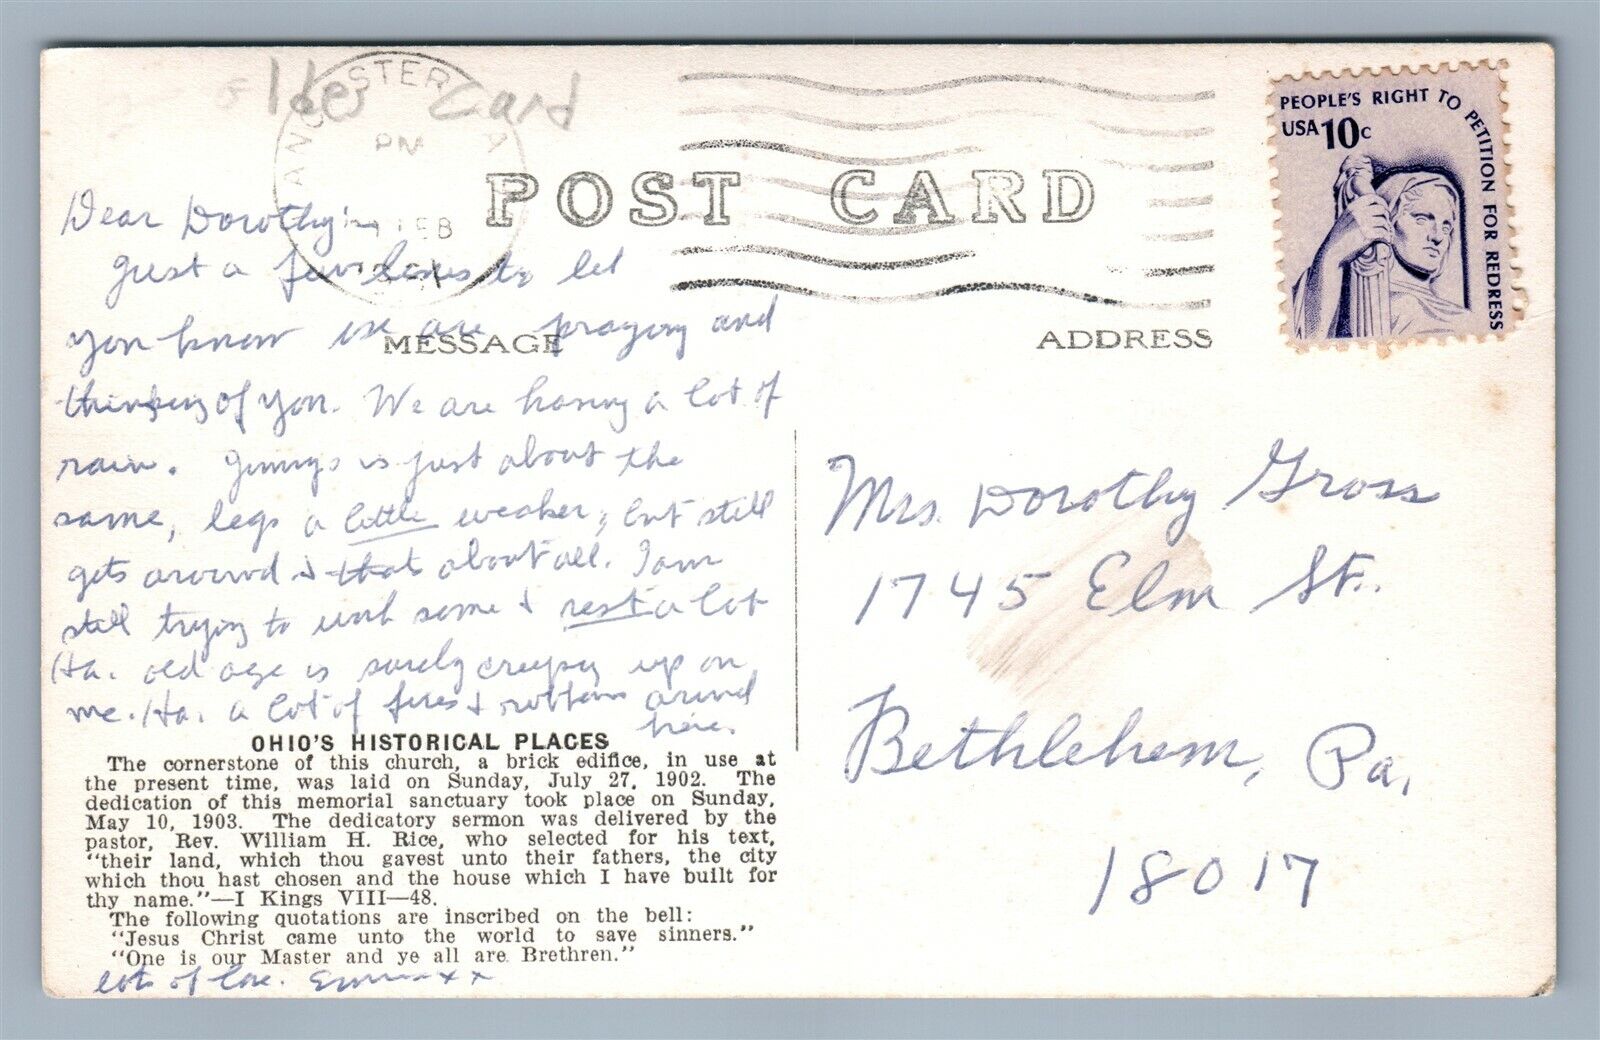 older Card
LANCASTER PA
PM
FEB
PEOPLE'S RIGHT TO PETITION FOR REDRESS
USA 10c
POST CARD
MESSAGE
ADDRESS
Dear Dorothy:
Just a few lines to let
you know we are praying and
thinking of you. We are having a lot of
rain. is just about the
same, legs a little weaker, but still
gets around & that's about all. I am
still trying to work some & rest a lot
Ha. old age is surely creeping up on
me. Ha. a lot of fires & around
here.
OHIO'S HISTORICAL PLACES
The cornerstone of this church, a brick edifice, in use at
the present time, was laid on Sunday, July 27, 1902. The
dedication of this memorial sanctuary took place on Sunday,
May 10, 1903. The dedicatory sermon was delivered by the
pastor, Rev. William H. Rice, who selected for his text,
"their land, which thou gavest unto their fathers, the city
which thou hast chosen and the house which I have built for
thy name."—I Kings VIII—48.
The following quotations are inscribed on the bell:
"Jesus Christ came unto the world to save sinners."
"One is our Master and ye all are Brethren."
lots of love. Emma xx
Mrs. Dorothy Gross
1745 Elm St.
Bethlehem, Pa.
18017